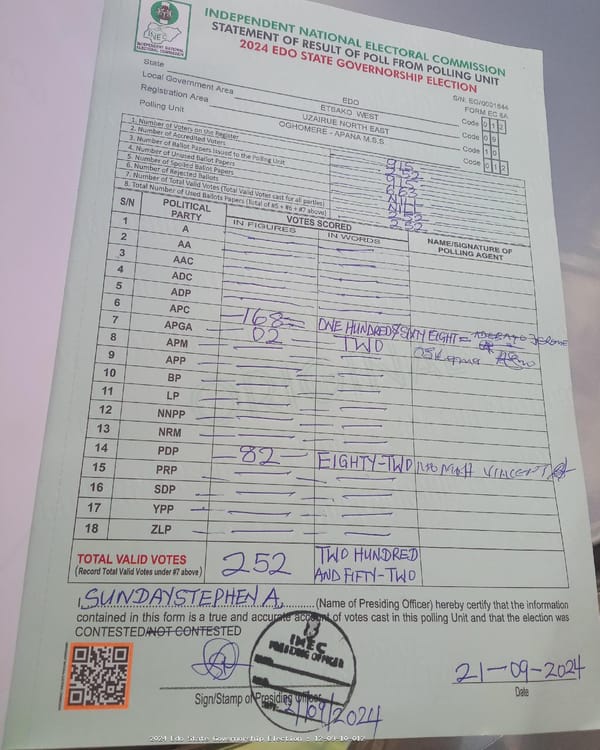 INEC
INDEPENDENT NATIONAL
ELECTORAL COMMISSION
INDEPENDENT NATIONAL ELECTORAL COMMISSION
STATEMENT OF RESULT OF POLL FROM POLLING UNIT
2024 EDO STATE GOVERNORSHIP ELECTION
S/N: EG/0001644
FORM EC 8A
State EDO Code 012
Local Government Area ETSAKO WEST Code 09
Registration Area UZAIRUE NORTH EAST Code 10
Polling Unit OGHOMERE - APANA M.S.S. Code 012
1. Number of Voters on the Register 915
2. Number of Accredited Voters 252
3. Number of Ballot Papers Issued to the Polling Unit 915
4. Number of Unused Ballot Papers 663
5. Number of Spoiled Ballot Papers NIL
6. Number of Rejected Ballots NIL
7. Number of Total Valid Votes (Total Valid Votes cast for all parties) 252
8. Total Number of Used Ballots Papers (Total of #5 + #6 + #7 above) 252
S/N POLITICAL PARTY VOTES SCORED NAME/SIGNATURE OF POLLING AGENT
IN FIGURES IN WORDS
1 A
2 AA
3 AAC
4 ADC
5 ADP
6 APC 168 ONE HUNDRED & SIXTY EIGHT
7 APGA 02 TWO
8 APM
9 APP
10 BP
11 LP
12 NNPP
13 NRM
14 PDP 82 EIGHTY-TWO VINCENT
15 PRP
16 SDP
17 YPP
18 ZLP
TOTAL VALID VOTES 252 TWO HUNDRED
(Record Total Valid Votes under #7 above) AND FIFTY-TWO
I, SUNDAY STEPHEN A. (Name of Presiding Officer) hereby certify that the information
contained in this form is a true and accurate account of votes cast in this polling Unit and that the election was
CONTESTED/NOT CONTESTED
INEC
PRESIDING OFFICER
21/09/2024
21-09-2024
Sign/Stamp of Presiding Officer
Date
2024 Edo State Governorship Election - 12-09-10-012